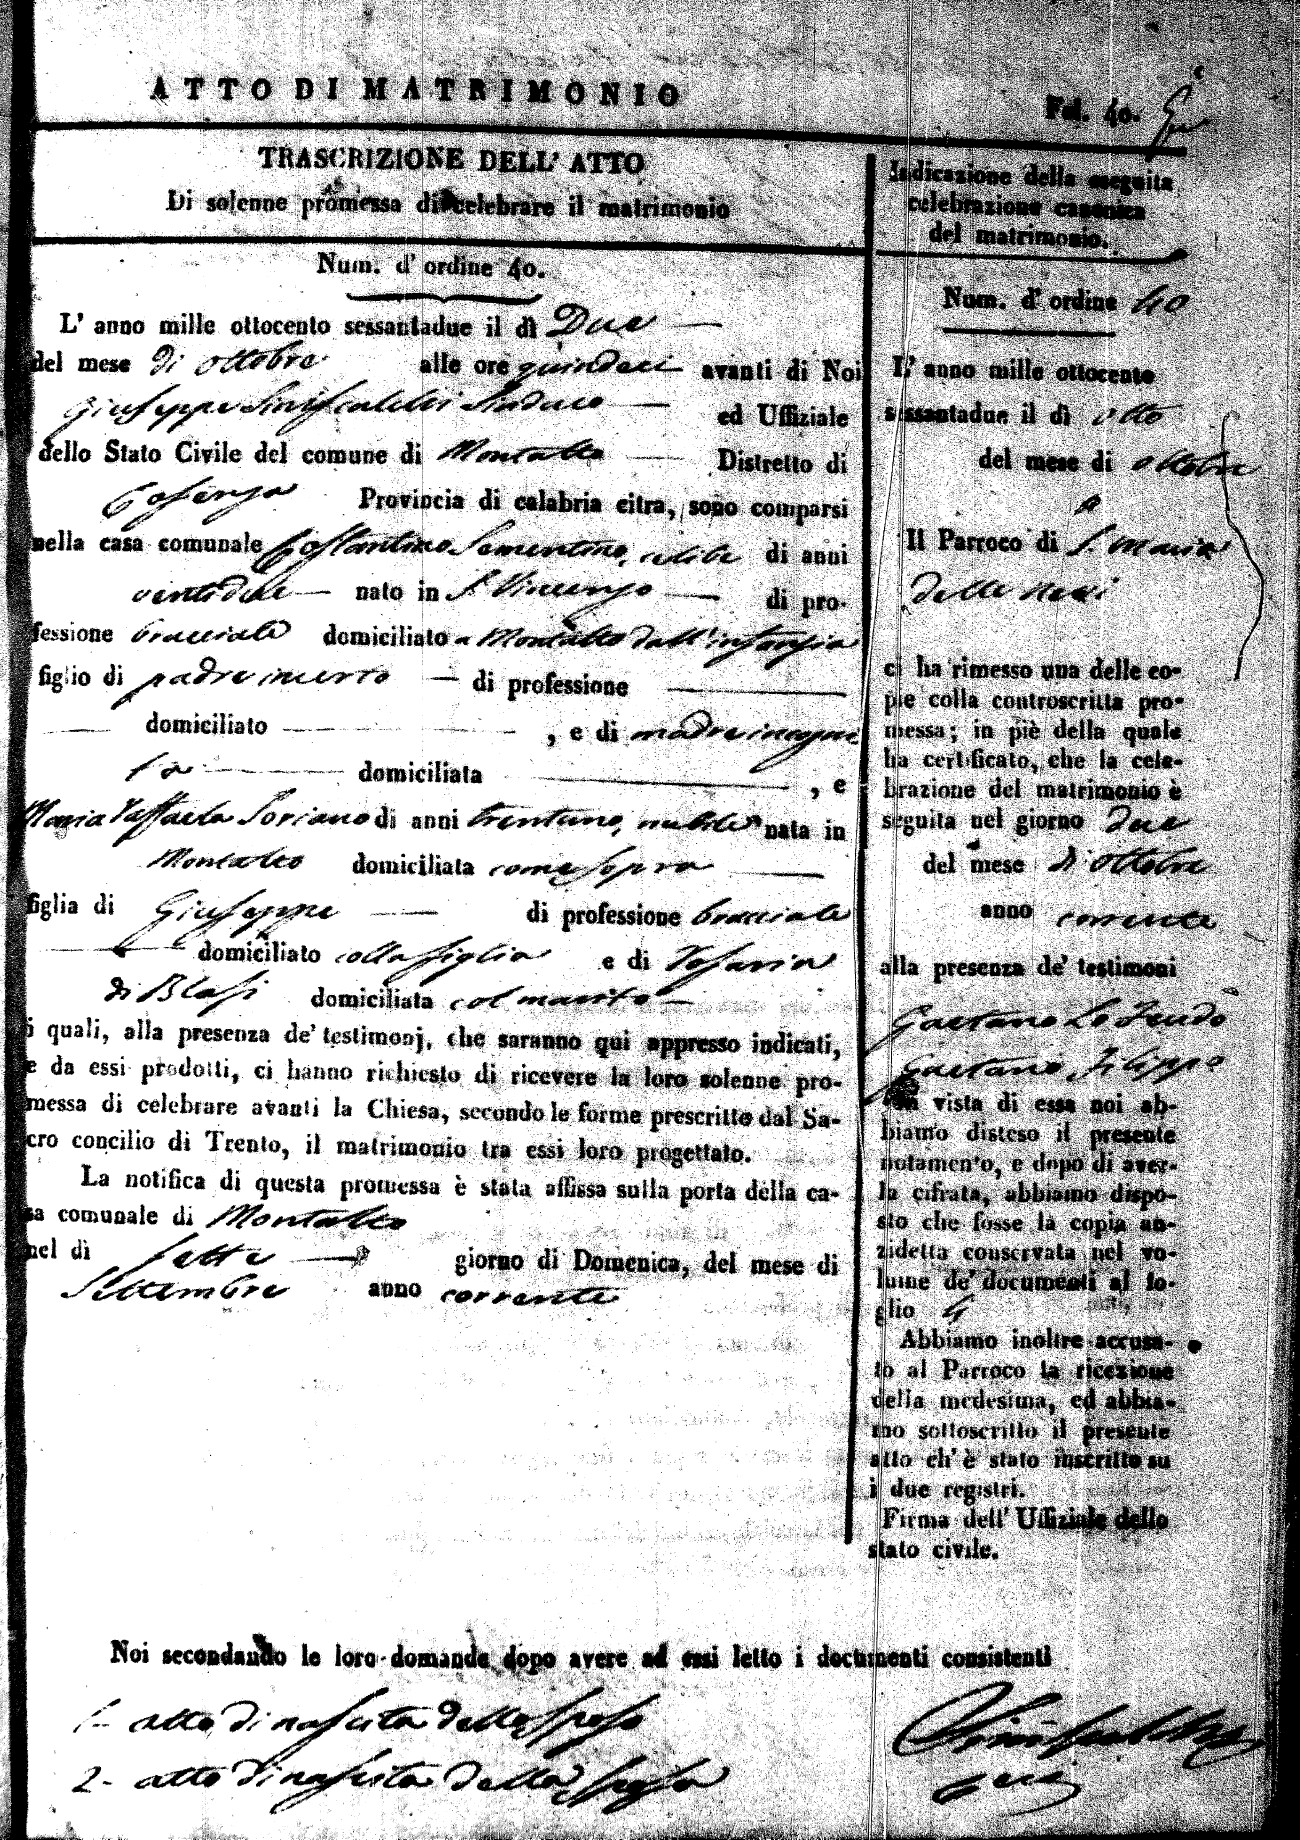 ATTO DI MATRIMONIO
Fol. 40.
TRASCRIZIONE DELL' ATTO
Di solenne promessa di celebrare il matrimonio
Num. d' ordine 40.
L' anno mille ottocento sessantadue il dì Due
del mese di ottobre alle ore quindeci avanti di Noi
Giuseppe Siniscalchi Sindaco ed Uffiziale
dello Stato Civile del comune di Montalto Distretto di
Cosenza Provincia di calabria citra, sono comparsi
nella casa comunale Costantino Sementino, celibe di anni
ventidue nato in S. Vincenzo di pro-
fessione bracciale domiciliato a Montalto dall'infanzia
figlio di padre incerto di professione
domiciliato , e di madre incogni
ta domiciliata , e
Maria Raffaela Soriano di anni trentuno, nubile nata in
Montalto domiciliata come sopra
figlia di Giuseppe di professione bracciale
domiciliato colla figlia e di Rosaria
di Blasi domiciliata col marito
i quali, alla presenza de' testimonj, che saranno qui appresso indicati,
e da essi prodotti, ci hanno richiesto di ricevere la loro solenne pro-
messa di celebrare avanti la Chiesa, secondo le forme prescritte dal Sa-
cro concilio di Trento, il matrimonio tra essi loro progettato.
La notifica di questa promessa è stata affissa sulla porta della ca-
sa comunale di Montalto
nel dì sette giorno di Domenica, del mese di
Settembre anno corrente
Indicazione della seguita
celebrazione canonica
del matrimonio.
Num. d' ordine 40
L' anno mille ottocento
sessantadue il dì otto
del mese di ottobre
Il Parroco di S. Maria
delle Nevi
ci ha rimesso una delle co-
pie colla controscritta pro-
messa; in piè della quale
ha certificato, che la cele-
brazione del matrimonio è
seguita nel giorno due
del mese di ottobre
anno corrente
alla presenza de' testimoni
Gaetano Lo Feudo
Gaetano Filippo
In vista di essa noi ab-
biamo disteso il presente
notamento, e dopo di aver-
la cifrata, abbiamo dispo-
sto che fosse la copia an-
zidetta conservata nel vo-
lume de' documenti al fo-
glio 4
Abbiamo inoltre accusa-
to al Parroco la ricezione
della medesima, ed abbia-
mo sottoscritto il presente
atto ch' è stato inscritto su
i due registri.
Firma dell' Uffiziale dello
stato civile.
Noi secondando le loro domande dopo avere ad essi letto i documenti consistenti
1- atto di nascita dello sposo
2- atto di nascita della sposa
Siniscalchi